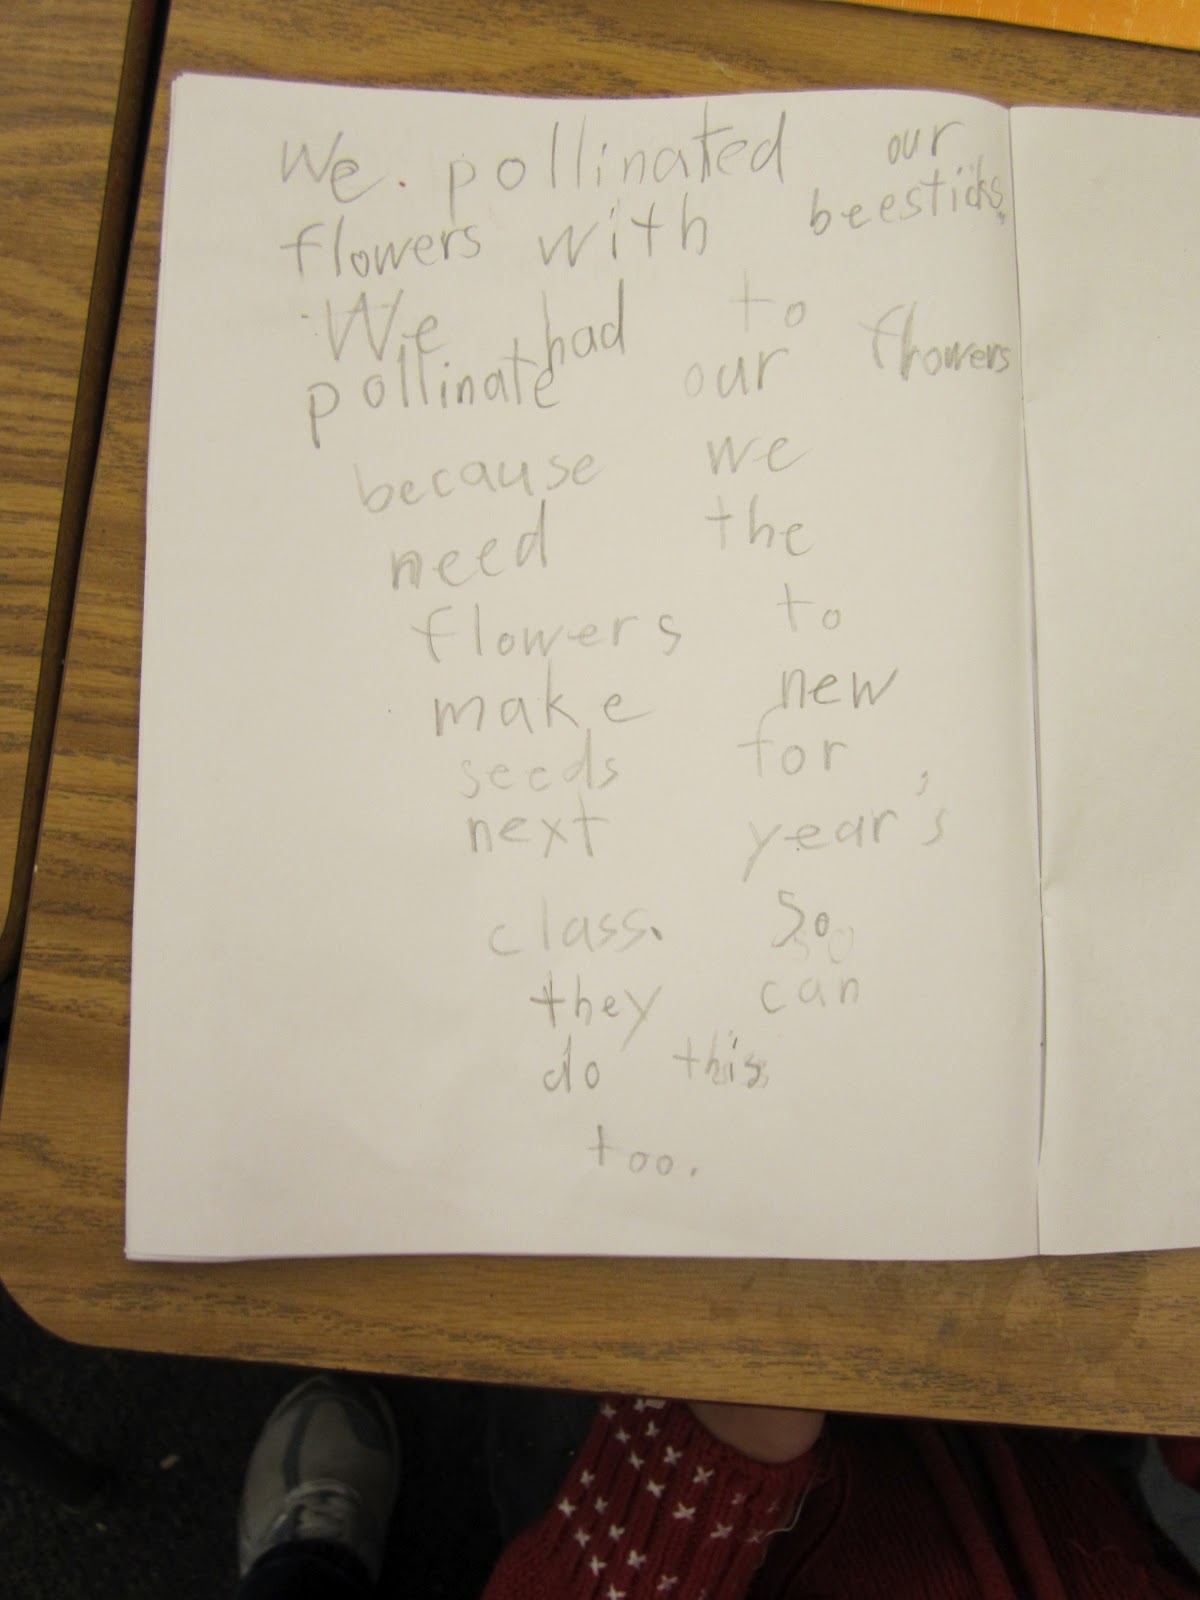 We. pollinated our
flowers with beesticks.
We had to
pollinate our flowers
because we
need the
flowers to
make new
seeds for
next year's
class. So
they can
do this
too.